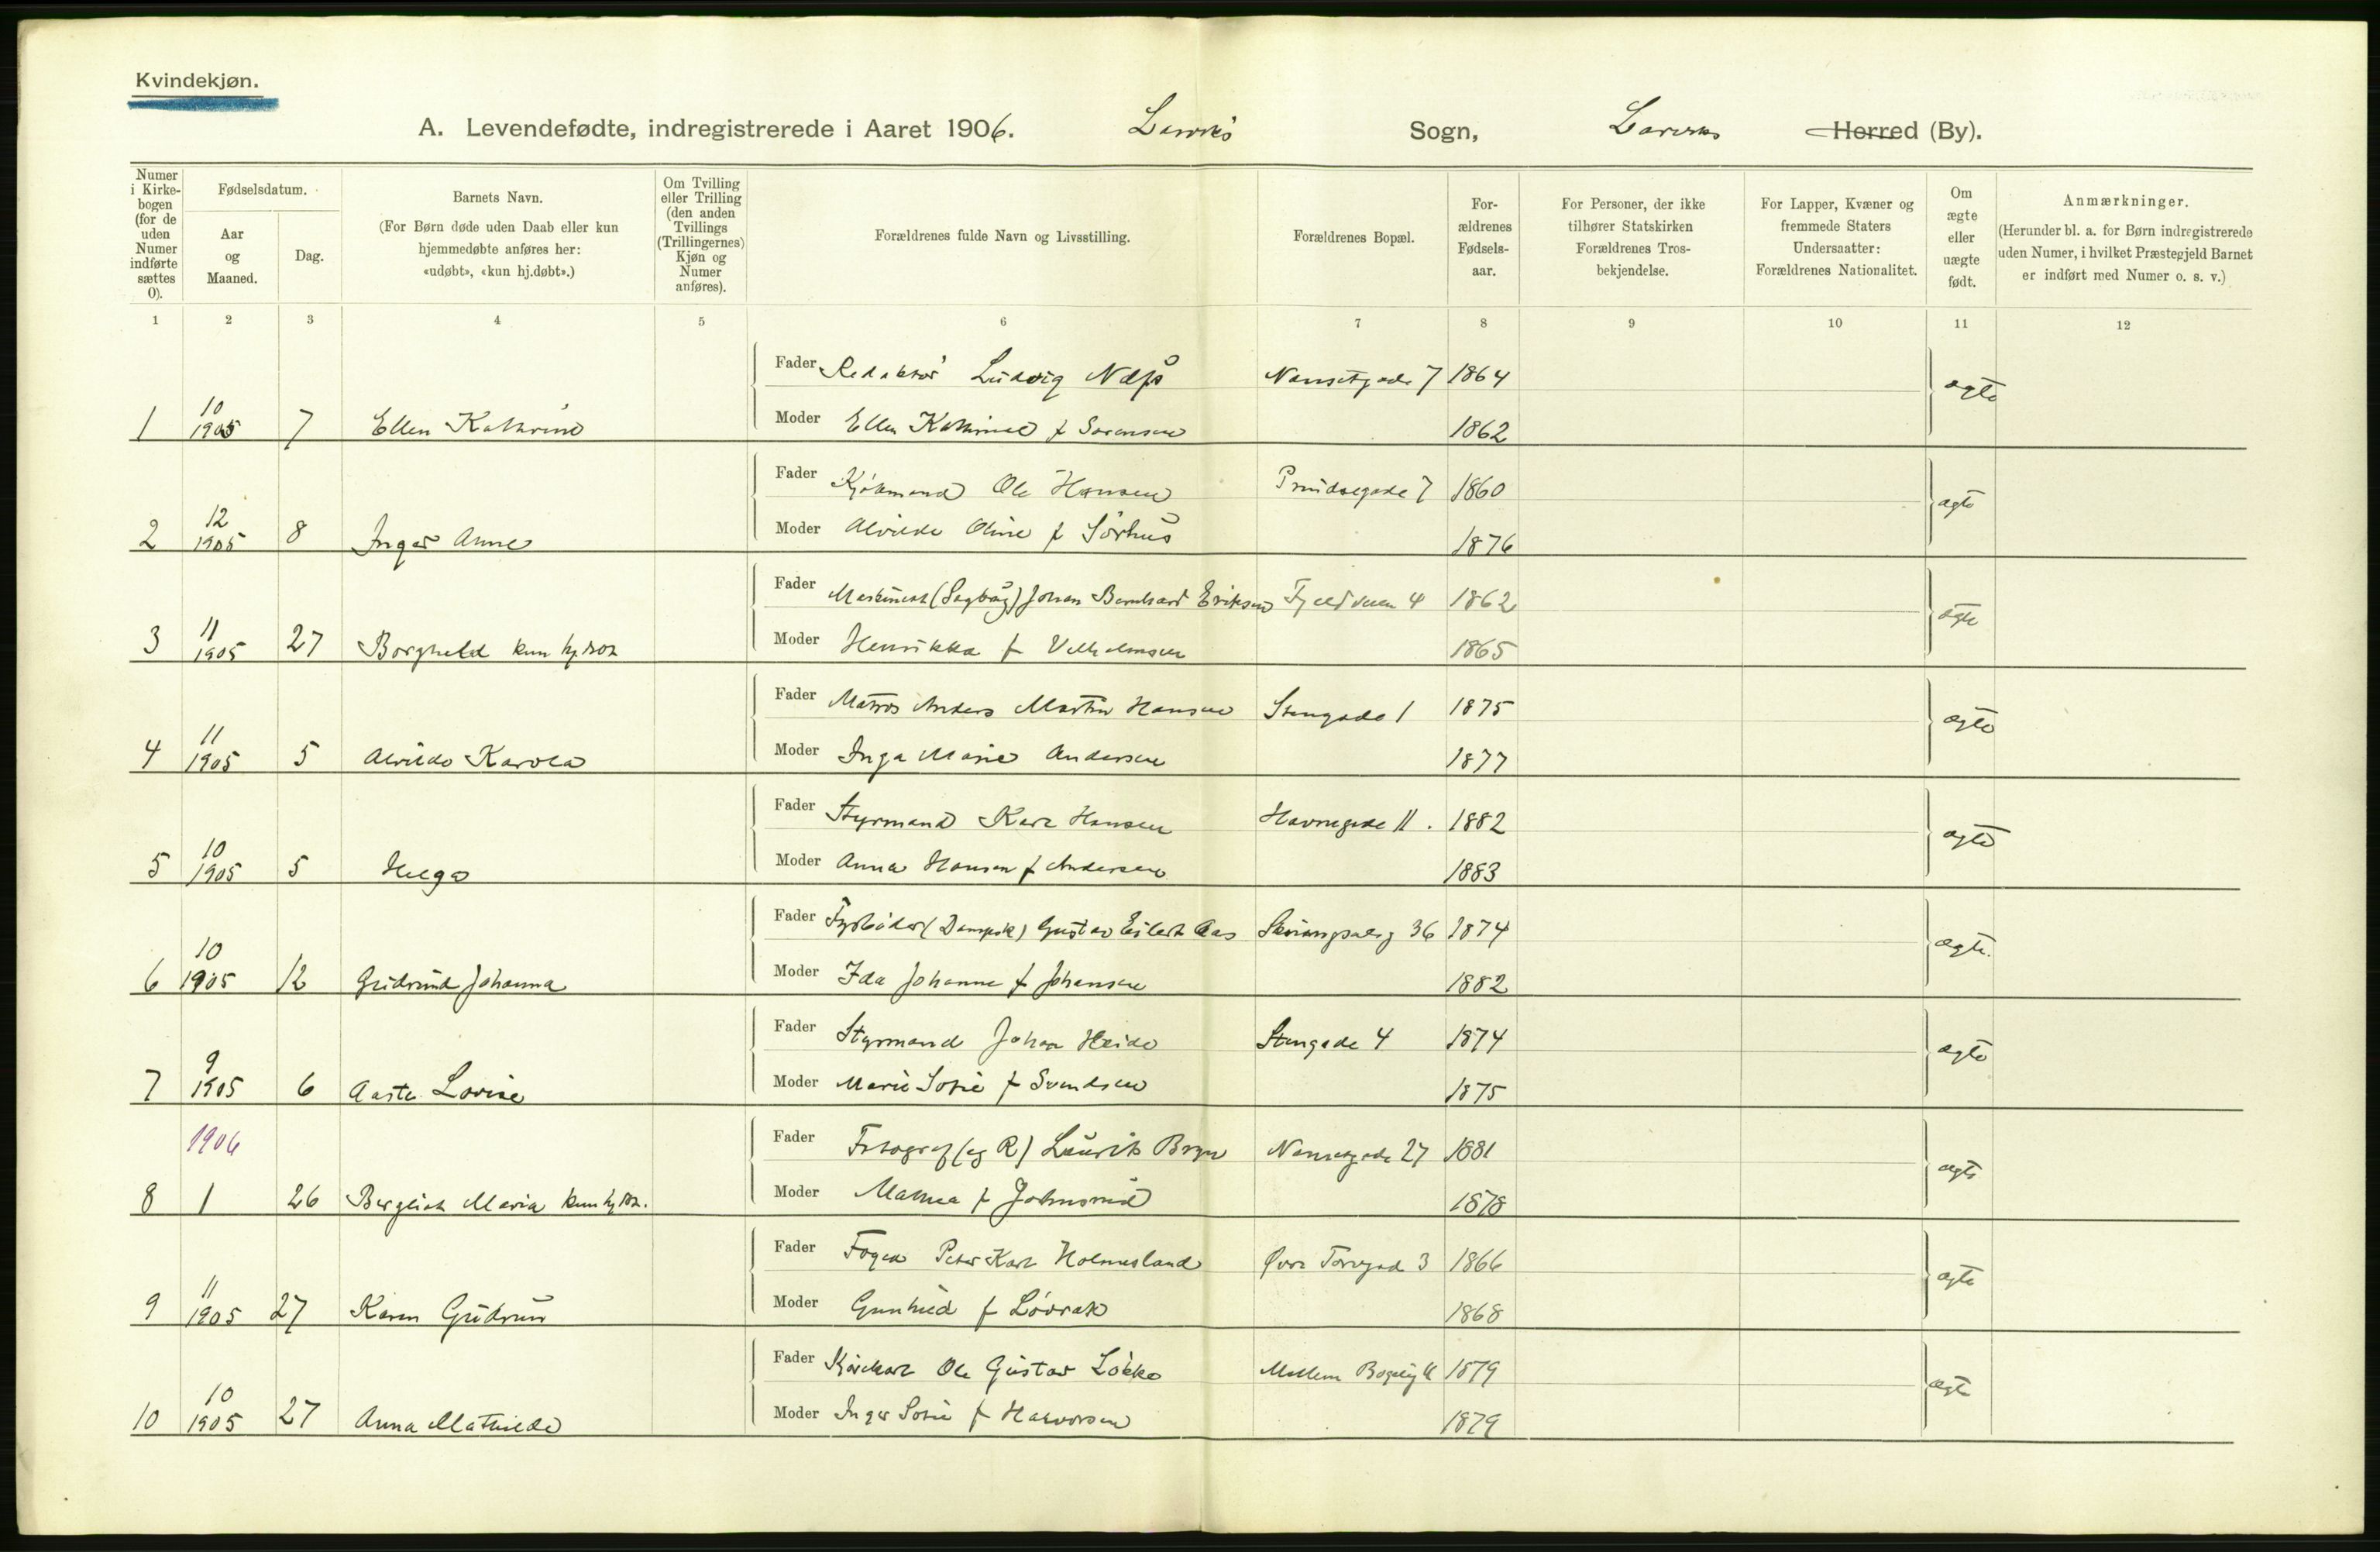 Kvindekjøn.
A. Levendefødte, indregistrerede i Aaret 1906. Larviks Sogn, Larviks Herred (By).
Numer i Kirkebogen (for de uden Numer indførte sættes 0).
Fødselsdatum.
Aar og Maaned.
Dag.
Barnets Navn.
(For Børn døde uden Daab eller kun hjemmedøbte anføres her: «udøbt», «kun hj.døbt».)
Om Tvilling eller Trilling (den anden Tvillings (Trillingernes) Kjøn og Numer anføres).
Forældrenes fulde Navn og Livsstilling.
Forældrenes Bopæl.
Forældrenes Fødselsaar.
For Personer, der ikke tilhører Statskirken Forældrenes Trosbekjendelse.
For Lapper, Kvæner og fremmede Staters Undersaatter: Forældrenes Nationalitet.
Om ægte eller uægte født.
Anmærkninger.
(Herunder bl. a. for Børn indregistrerede uden Numer, i hvilket Præstegjeld Barnet er indført med Numer o. s. v.)
1 2 3 4 5 6 7 8 9 10 11 12
Fader Redaktør Ludvig Næss Nansetgade 7 1864 ægte
1 10 1905 7 Ellen Kathrine Moder Ellen Kathrine f Sørensen 1862
Fader Kjøbmand Ole Hansen Prindsegade 7 1860 ægte
2 12 1905 8 Inger Anne Moder Alvilde Oline f Sørhus 1876
Fader Maskinist (Sagbrug) Johan Bernhard Eriksen Fjeldveien 4 1862 ægte
3 11 1905 27 Borghild kun hj.døbt Moder Henrikka f Vilhelmsen 1865
Fader Matros Anders Martin Hansen Stengade 1 1875 ægte
4 11 1905 5 Alvilde Karola Moder Inga Marie Andersen 1877
Fader Styrmand Karl Hansen Havnegade 11. 1882 ægte
5 10 1905 5 Helga Moder Anna Hansen f Andersen 1883
Fader Fyrbøder (Dampsk) Gustav Eilert Aas 36 1874 ægte.
6 10 1905 12 Gudrund Johanna Moder Ida Johanne f Johansen 1882
Fader Styrmand Johan Heide Stengade 4 1874 ægte
7 9 1905 6 Aasta Lovise Moder Marie Sofie f Svendsen 1875
1906 Fader Fotograf (eg R) Laurits Bryn Nansetgade 27 1881 ægte
8 1 26 Bergliot Maria kun hj.døbt. Moder Mathea f Johnsrud 1878
Fader Foged Peter Karl Holmesland Øvre Torvgad 3 1866 ægte
9 11 1905 27 Karen Gudrun Moder Gunhild f Løvrak 1868
Fader Kjørekarl Ole Gustav Løkke Mellem 1879 ægte
10 10 1905 27 Anna Mathilde Moder Inger Sofie f Halvorsen 1879